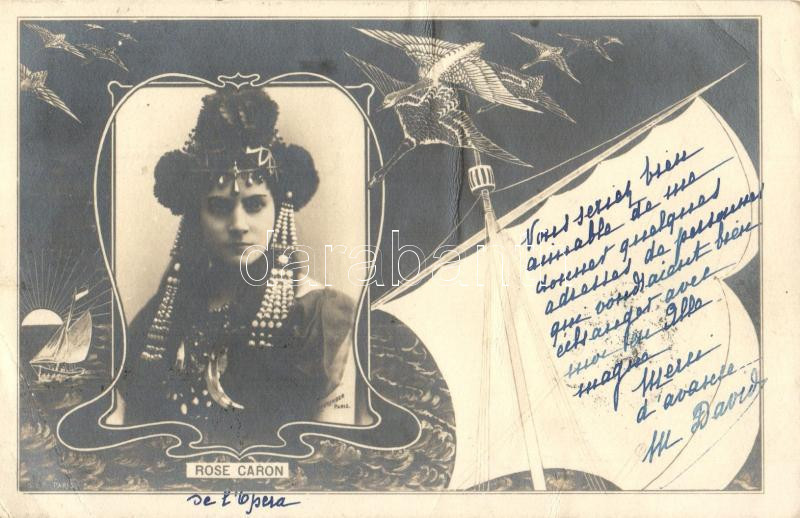 Vous seriez bien
aimable de me
donner quelques
adresses de personnes
qui voudraient bien
échanger avec
moi en Alle
magne
Merci
d'avance
M David
darabanth
PARIS.
ROSE CARON
de l'Opera
PARIS